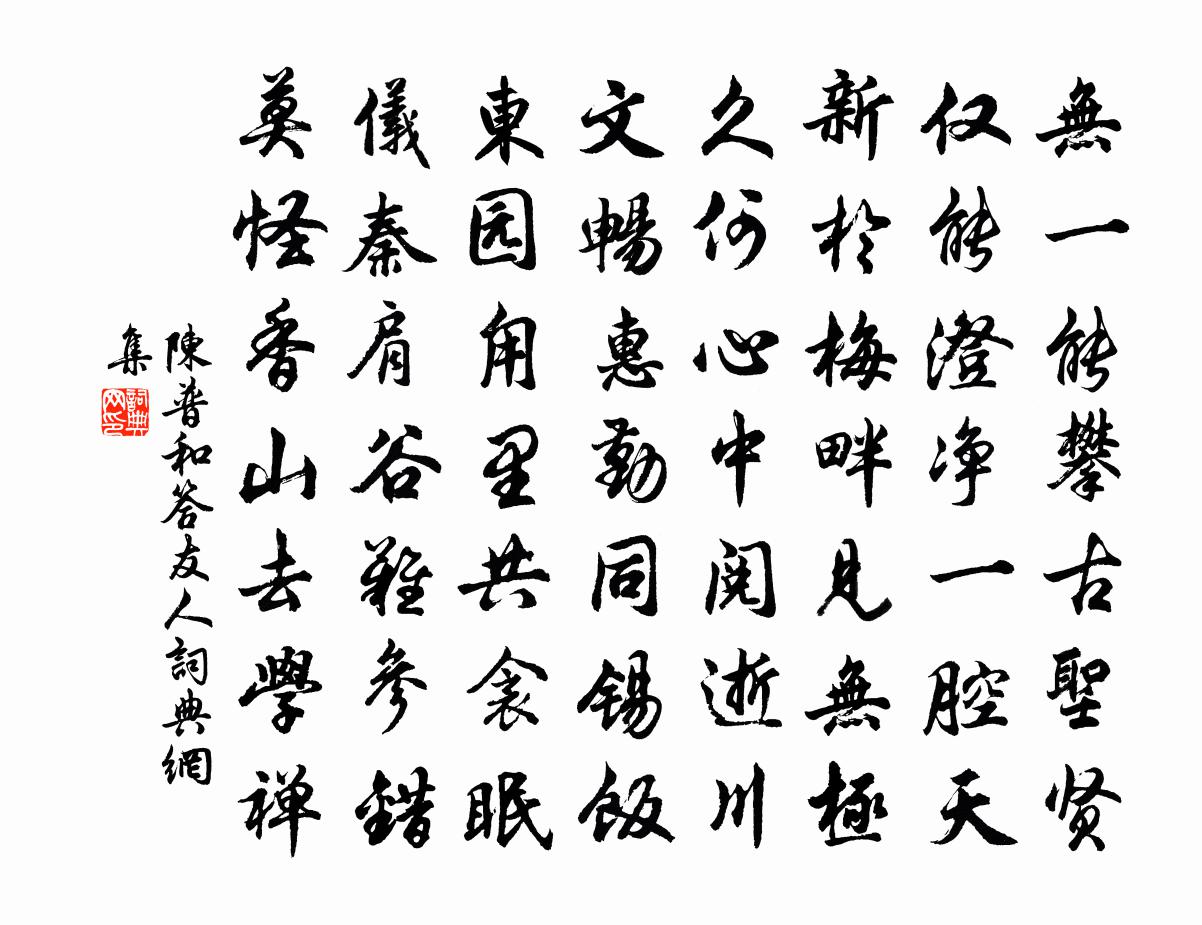 無一能攀古聖贤
仅能澄净一腔天
新於梅畔見無極
久何心中閱逝川
文暢惠勤同錫飯
東园用里共衾眠
儀秦肩谷難參錯
莫怪香山去學禅
陳普和答友人詞典網
集
詞典网印